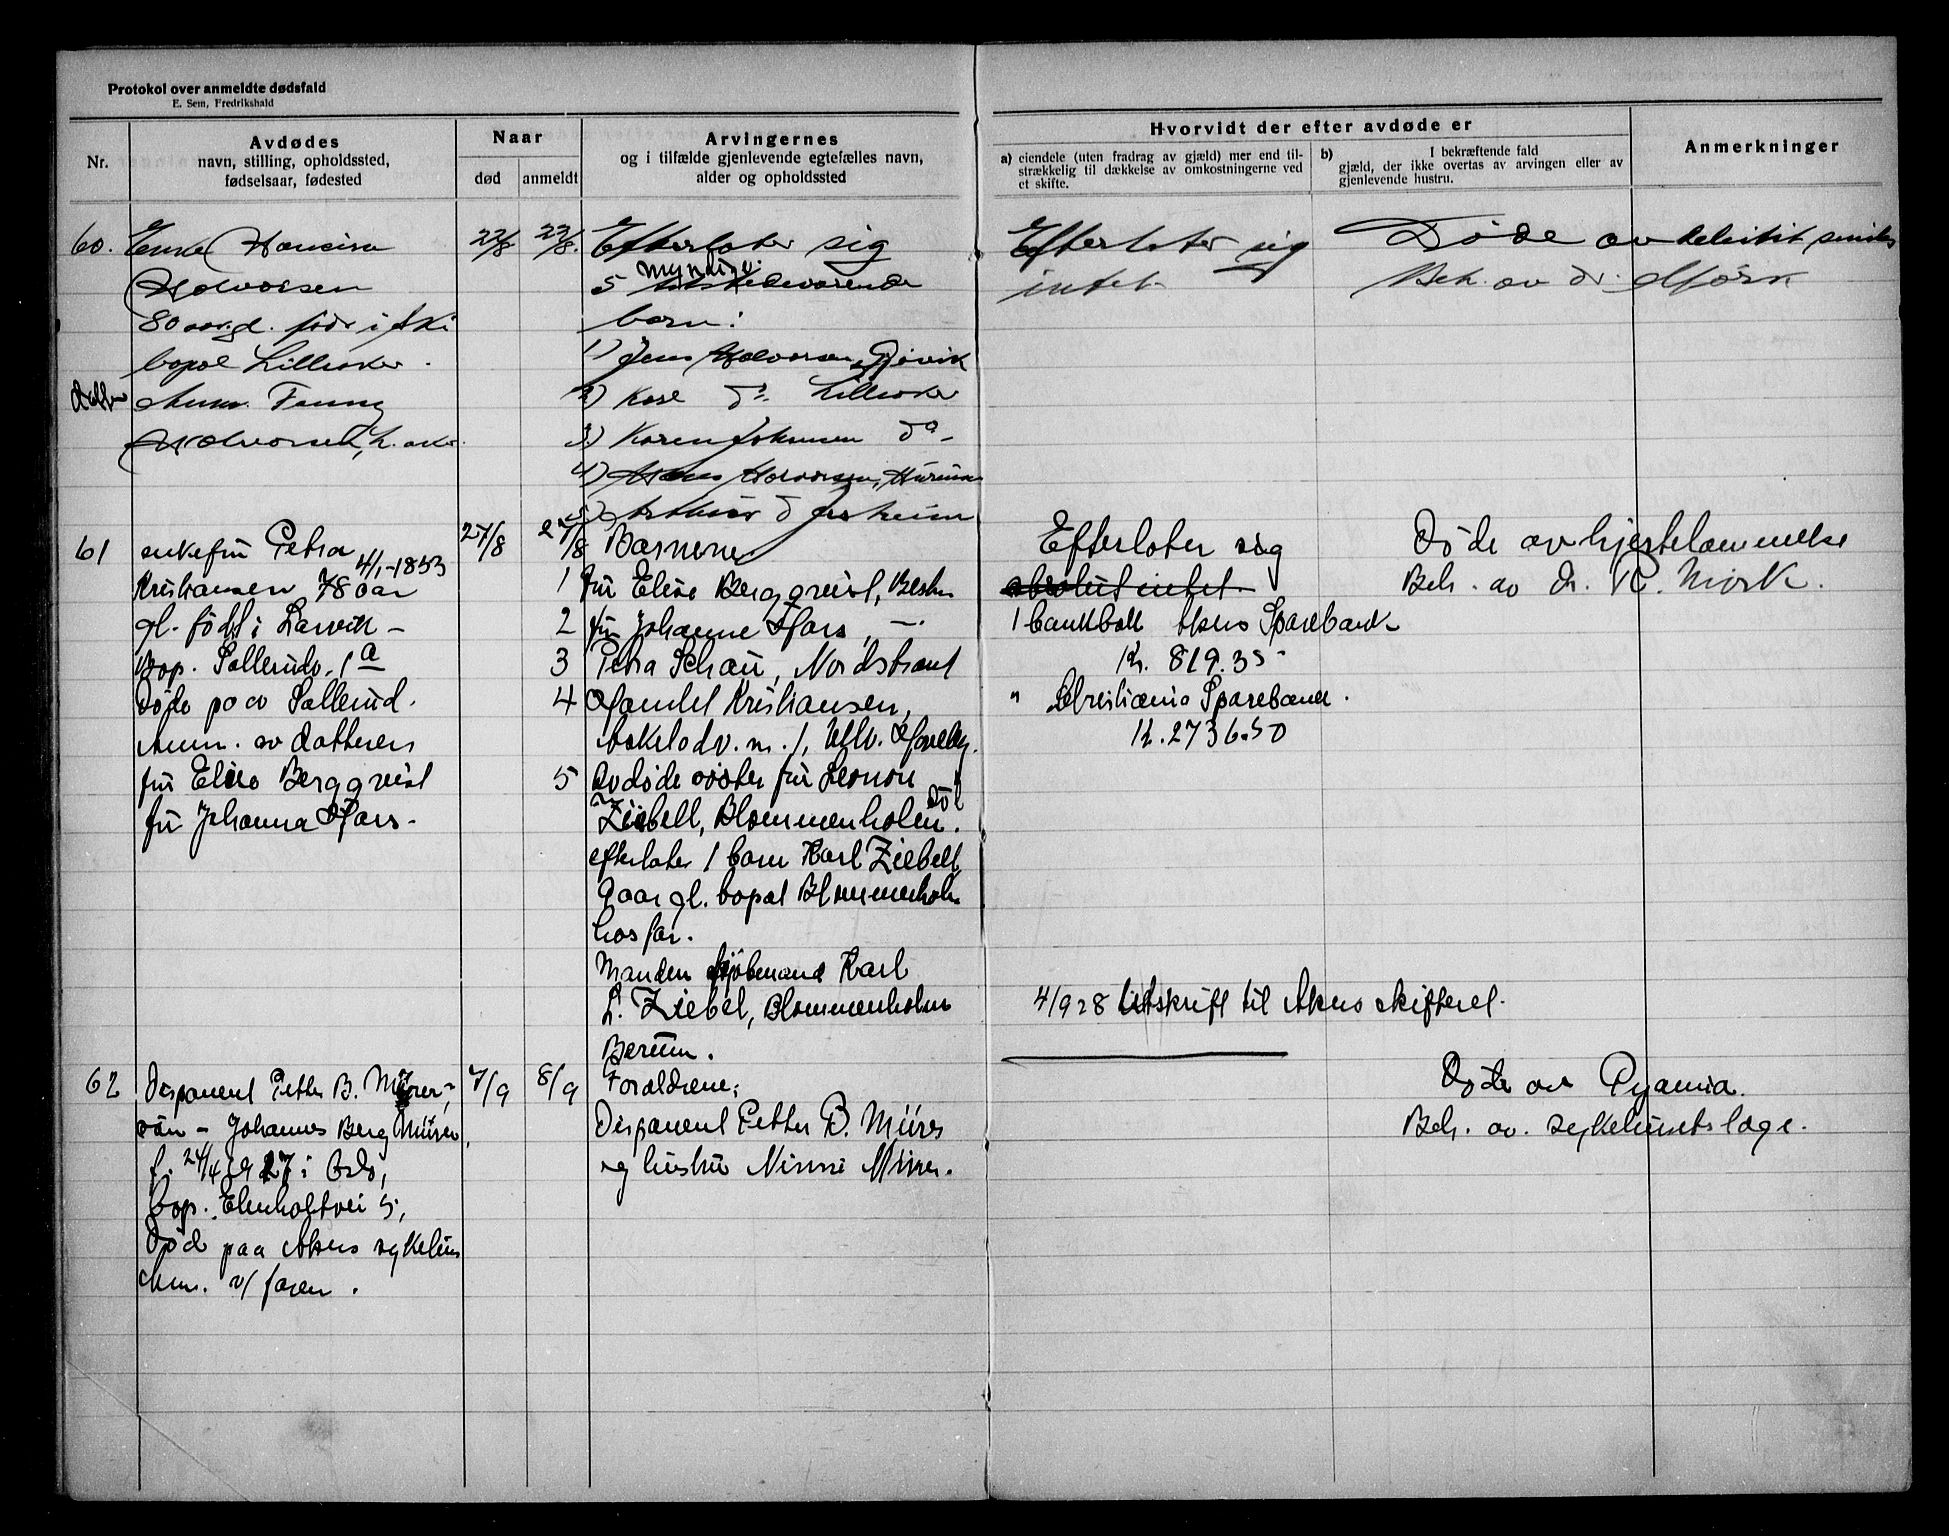 Protokol over anmeldte dødsfald
E. Sem, Fredrikshald
Nr.
Avdødes
navn, stilling, opholdssted,
fødselsaar, fødested
Naar
død
anmeldt
Arvingernes
og i tilfælde gjenlevende egtefælles navn,
alder og opholdssted
Hvorvidt der efter avdøde er
a) eiendele (uten fradrag av gjæld) mer end til-
strækkelig til dækkelse av omkostningerne ved
et skifte.
b) I bekræftende fald
gjæld, der ikke overtas av arvingen eller av
gjenlevende hustru.
Anmerkninger
60. Enke
Halvorsen
80 aar gl. født i Ski
bopæl Lilleaker.
Anm. Fanny
Halvorsen, L. aker.
22/8
22/8.
Efterlater sig
myndige
5
barn:
1) Jens Halvorsen, Gjøvik
2) Karl do. Lilleaker
3) Karen Johansen do -
4) Hans Halvorsen, Hurum
5) Arthur do Jessheim
Efterlater sig
intet.
Døde av senilis
Beh. av dr. Mørk
61 enkefru Petra
4/1-1853
Kristiansen 78 aar
gl. født i Larvik -
Bop. Sollerudv. 1 a
Døde paa Sollerud.
Anm. av datteren
fru Elise Bergqvist
fru Johanna Hars.
27/8
27/8
Barnene
1 fru Elise Bergqvist, Bestun
2 fru Johanne Hars, —
3 Petra Schau, Nordstrand
4 Harald Kristiansen,
Askeladv. n. 1, Ullv. Haveby.
5 Avdøde søster fru Leonore
Ziebell, Blommenholm. død
efterlater 1 barn Karl Ziebell
9 aar gl. bopæl Blommenholm
hos far.
Manden kjøbmand Karl
L. Ziebel, Blommenholm
Bærum.
Efterlater sig
absolut intet.
1 bankbok Akers Sparebank
Kr. 819.35
" Christiania Sparebank.
Kr. 2736.50
4/9 28 Utskrift til Akers skifteret.
Døde av hjertelammelse
Beh. av Dr. R. Mørk.
62 Disponent Petter B. Mürer,
søn - Johannes Berg Mürer,
f. 24/4 1927 i Oslo,
bop. Elenholtvei 5,
Død paa Akers sykehus
Anm. v/ faren.
7/9
8/9
Forældrene:
Disponent Petter B. Mürer
og hustru Ninni Mürer.
Døde av Pyæmia.
Beh. av. sykehusets læge.